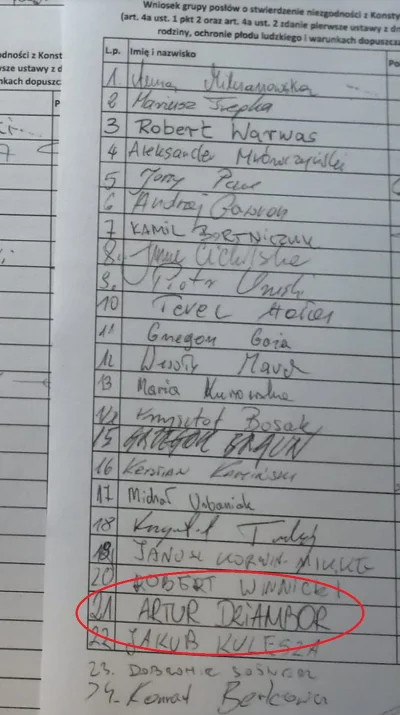 Wniosek grupy posłów o stwierdzenie niezgodności z Konsty
(art. 4a ust. 1 pkt 2 oraz art. 4a ust. 2 zdanie pierwsze ustawy z dn
rodziny, ochronie płodu ludzkiego i warunkach dopuszcza
L.p. Imię i nazwisko Po
1. Anna Milczanowska
2 Mariusz Trepka
3 Robert Warwas
4 Aleksander Mrówczyński
5 Jerzy
6 Andrzej Gawron
7 KAMIL BORTNICZUK
8. Anna Cicholska
9. Piotr Uruski
10 Teresa
11 Grzegorz
12
13 Maria Kurowska
14 Krzysztof Bosak
15 GRZEGORZ BRAUN
16 Krystian Kamiński
17 Michał Urbaniak
18 Krzysztof
19. JANUSZ KORWIN-MIKKE
20 ROBERT WINNICKI
21 ARTUR DZIAMBOR
22 JAKUB KULESZA
23. DOBROMIR SOŚNIERZ
24. Konrad Berkowicz
odności z Konst
wsze ustawy z d
nkach dopuszcz
P